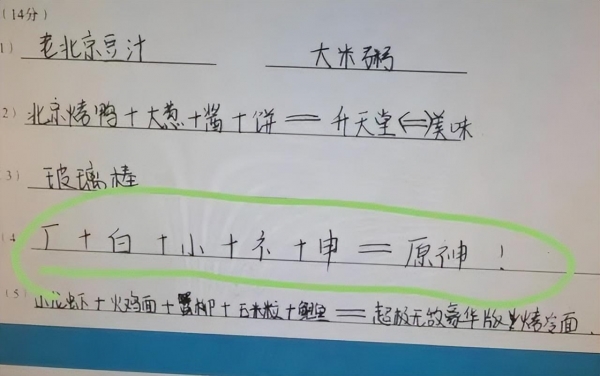 (14分)
1) 老北京豆汁 大米粥
2) 北京烤鸭+大葱+酱+饼=升天堂⇔美味
3) 玻璃棒
(4 丆+白+小+礻+申=原神!
(5) 小龙虾+火鸡面+蟹柳+玉米粒+鲍鱼=超极无敌豪华版烤冷面.